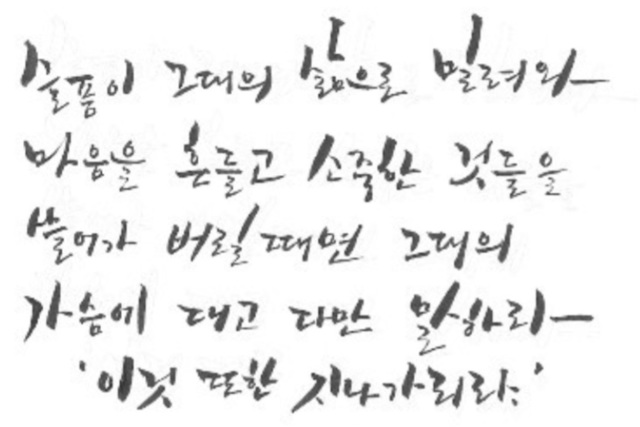 슬픔이 그대의 삶으로 밀려와
마음을 흔들고 소중한 것들을
쓸어가 버릴때면 그대의
가슴에 대고 다만 말하라
'이것 또한 지나가리라.'